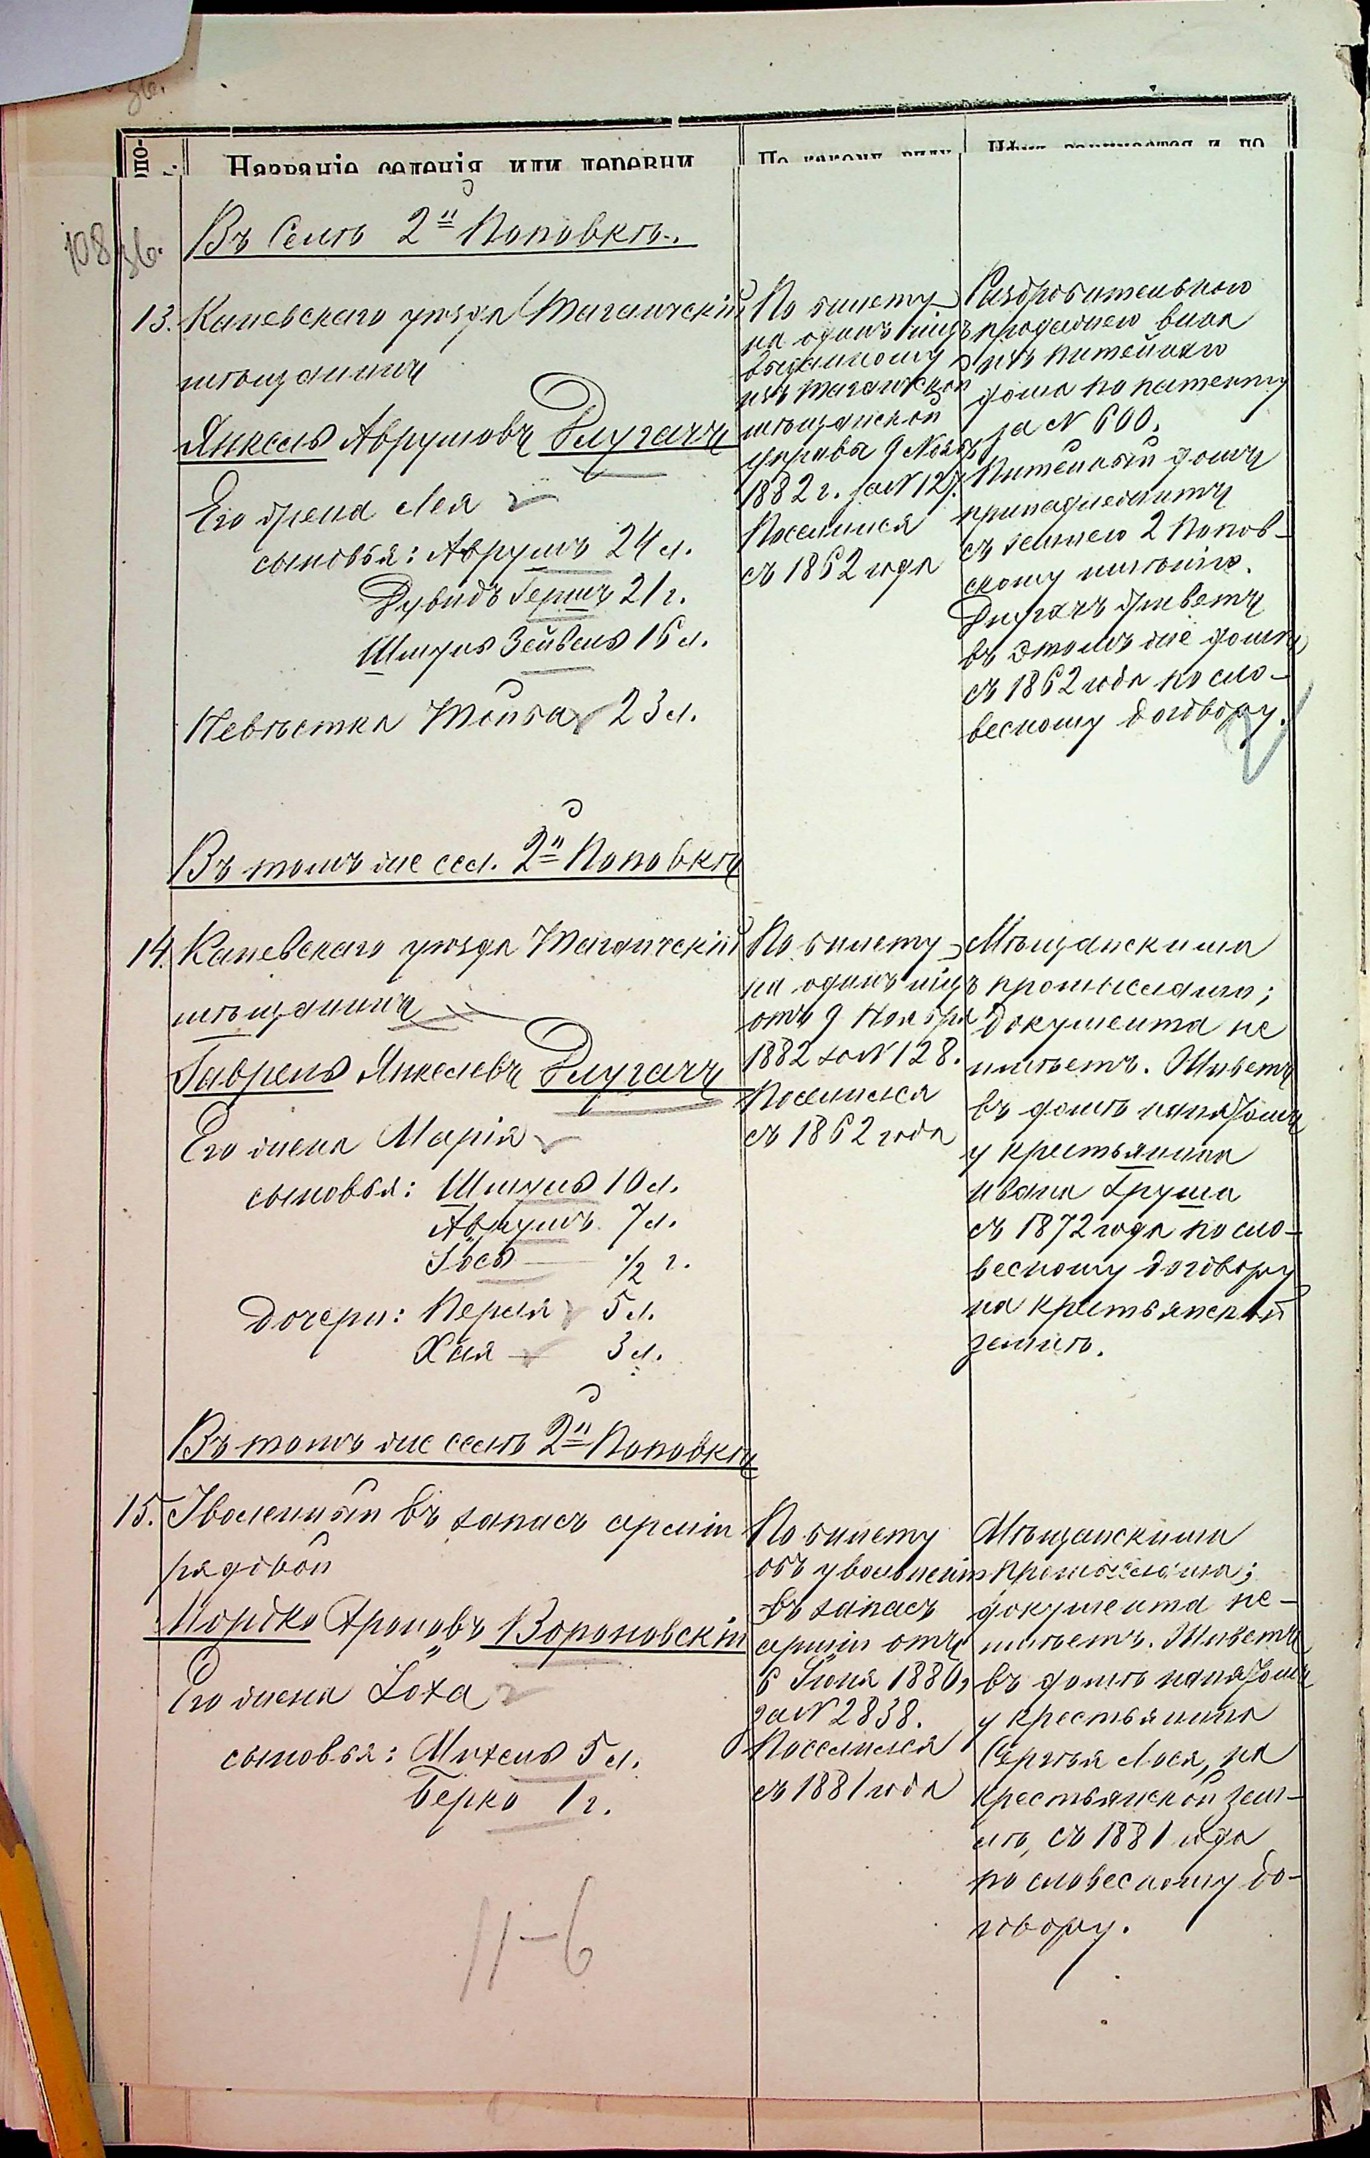 Названіе селенія или деревни
По какому виду
Въ Селѣ 2й Поповкѣ.
108
13. Каневскаго уѣзда Таганчскій
мѣщанинъ
Янкель Аврумовъ Длугачъ
Его жена Лея
сыновья: Аврумъ 24 л.
Дувидъ Гершъ 21 г.
Шмуль Зейвель 16 л.
Невѣстка Тойба 23 л.
По билету
на одинъ годъ
выданному
изъ Таганчской
мѣщанской
управы 9 Нояб.
1882 г. за № 127.
Поселился
съ 1862 года
Раздробительною
продажею вина
изъ питейнаго
дома по патенту
за № 600.
Питейный домъ
принадлежитъ
съ землею 2 Попов-
скому имѣнію.
Длугачъ живетъ
въ этомъ же домѣ
съ 1862 года по сло-
весному договору.
Въ томъ же сел. 2й Поповкѣ
14. Каневскаго уѣзда Таганчскій
мѣщанинъ
Гаврель Янкелевъ Длугачъ
Его жена Марія
сыновья: Шмуль 10 л.
Аврумъ 7 л.
Іось ½ г.
Дочери: Перля 5 л.
Хая 3 л.
По билету
на одинъ годъ
отъ 9 Ноября
1882 за № 128.
Поселился
съ 1862 года
Мѣщанскими
промыслами;
документа не
имѣетъ. Живетъ
въ домѣ нанятомъ
у крестьянина
Ивана Груша
съ 1872 года по сло-
весному договору
на крестьянской
землѣ.
Въ томъ же селѣ 2й Поповкѣ
15. Уволенный въ запасъ арміи
рядовой
Мордко Ароновъ Вороновскій
Его жена Іоха
сыновья: Михель 5 л.
Берко 1 г.
По билету
объ увольненіи
въ запасъ
арміи отъ
6 Іюня 1880,
за № 2838.
Поселился
съ 1881 года
Мѣщанскими
промыслами;
документа не-
имѣетъ. Живетъ
въ домѣ нанятомъ
у крестьянина
Сергѣя Лося, на
крестьянской зем-
лѣ, съ 1881 года
по словесному до-
говору.
11-6